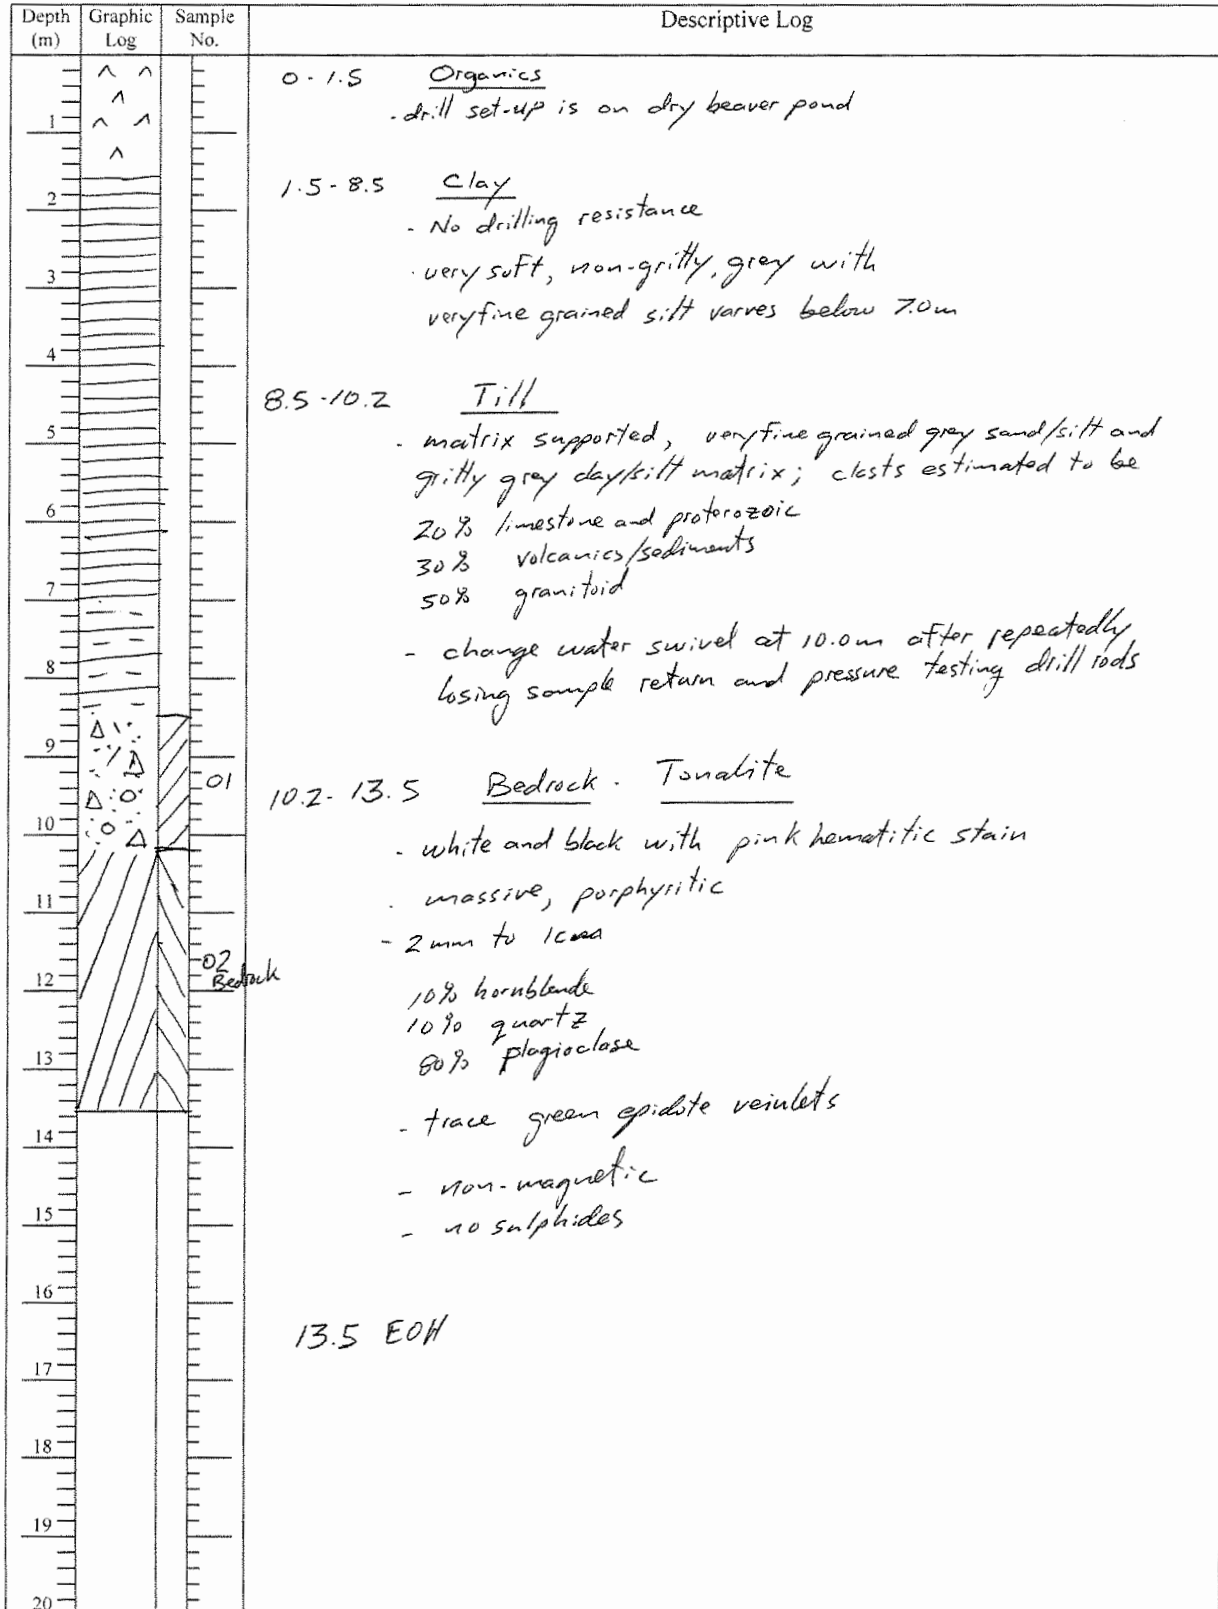 Depth Graphic Sample Descriptive Log
(m) Log No.
0 - 1.5 Organics
- drill set-up is on dry beaver pond
1
1.5 - 8.5 Clay
2
- No drilling resistance
- very soft, non-gritty, grey with
3
very fine grained silt varves below 7.0m
4
8.5 - 10.2 Till
5
- matrix supported, very fine grained grey sand/silt and
gritty grey clay/silt matrix; clasts estimated to be
6
20% limestone and proterozoic
30% volcanics/sediments
7
50% granitoid
- change water swivel at 10.0m after repeatedly
8
losing sample return and pressure testing drill rods
9
01
10.2 - 13.5 Bedrock - Tonalite
10
- white and black with pink hematitic stain
11
- massive, porphyritic
- 2 mm to 1cm
02
Bedrock
12
10% hornblende
10% quartz
13
80% plagioclase
- trace green epidote veinlets
14
- non-magnetic
15
- no sulphides
16
13.5 EOH
17
18
19
20